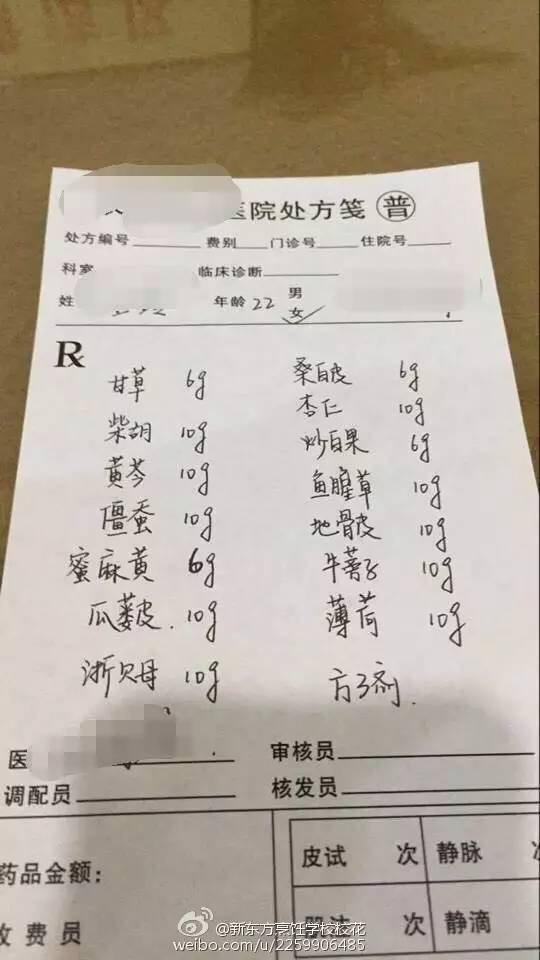 医院处方笺 普
处方编号 费别 门诊号 住院号
科室 临床诊断
姓 年龄 22 男
女 ✓
R
甘草 6g
柴胡 10g
黄芩 10g
僵蚕 10g
蜜麻黄 6g
瓜蒌皮 10g
浙贝母 10g
桑白皮 6g
杏仁 10g
炒白果 6g
鱼腥草 10g
地骨皮 10g
牛蒡子 10g
薄荷 10g
方3剂
医
审核员
调配员
核发员
药品金额:
收费员
皮试 次 静脉
次 静滴
@新东方烹饪学校校花
weibo.com/u/2259906485